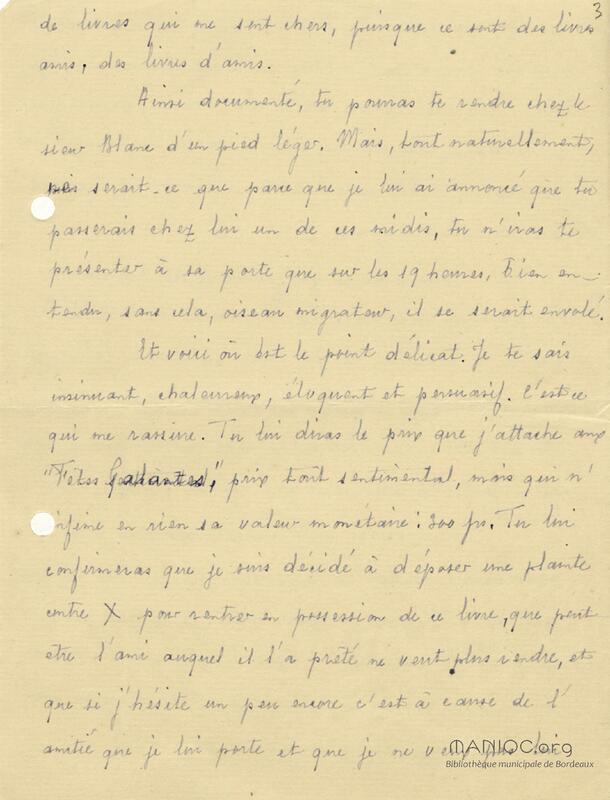 3
de livres qui me sont chers, puisque ce sont des livres
amis, des livres d'amis.
Ainsi documenté, tu pourras te rendre chez le
sieur Blanc d'un pied léger. Mais, tout naturellement,
serait-ce que parce que je lui ai annoncé que tu
passerais chez lui un de ces midis, tu n'iras te
présenter à sa porte que sur les 19 heures, bien en-
tendu, sans cela, oiseau migrateur, il se serait envolé.
Et voici où est le point délicat. Je te sais
insinuant, chaleureux, éloquent et persuasif. C'est ce
qui me rassure. Tu lui diras le prix que j'attache aux
"Fêtes Galantes," prix tout sentimental, mais qui n'
infime en rien sa valeur monétaire : 300 frs. Tu lui
confirmeras que je suis décidé à déposer une plainte
contre X pour rentrer en possession de ce livre, que peut
etre l'ami auquel il l'a prêté ne veut plus rendre, et
que si j'hésite un peu encore c'est à cause de l'
amitié que je lui porte et que je ne
MANIOC.org
Bibliothèque municipale de Bordeaux